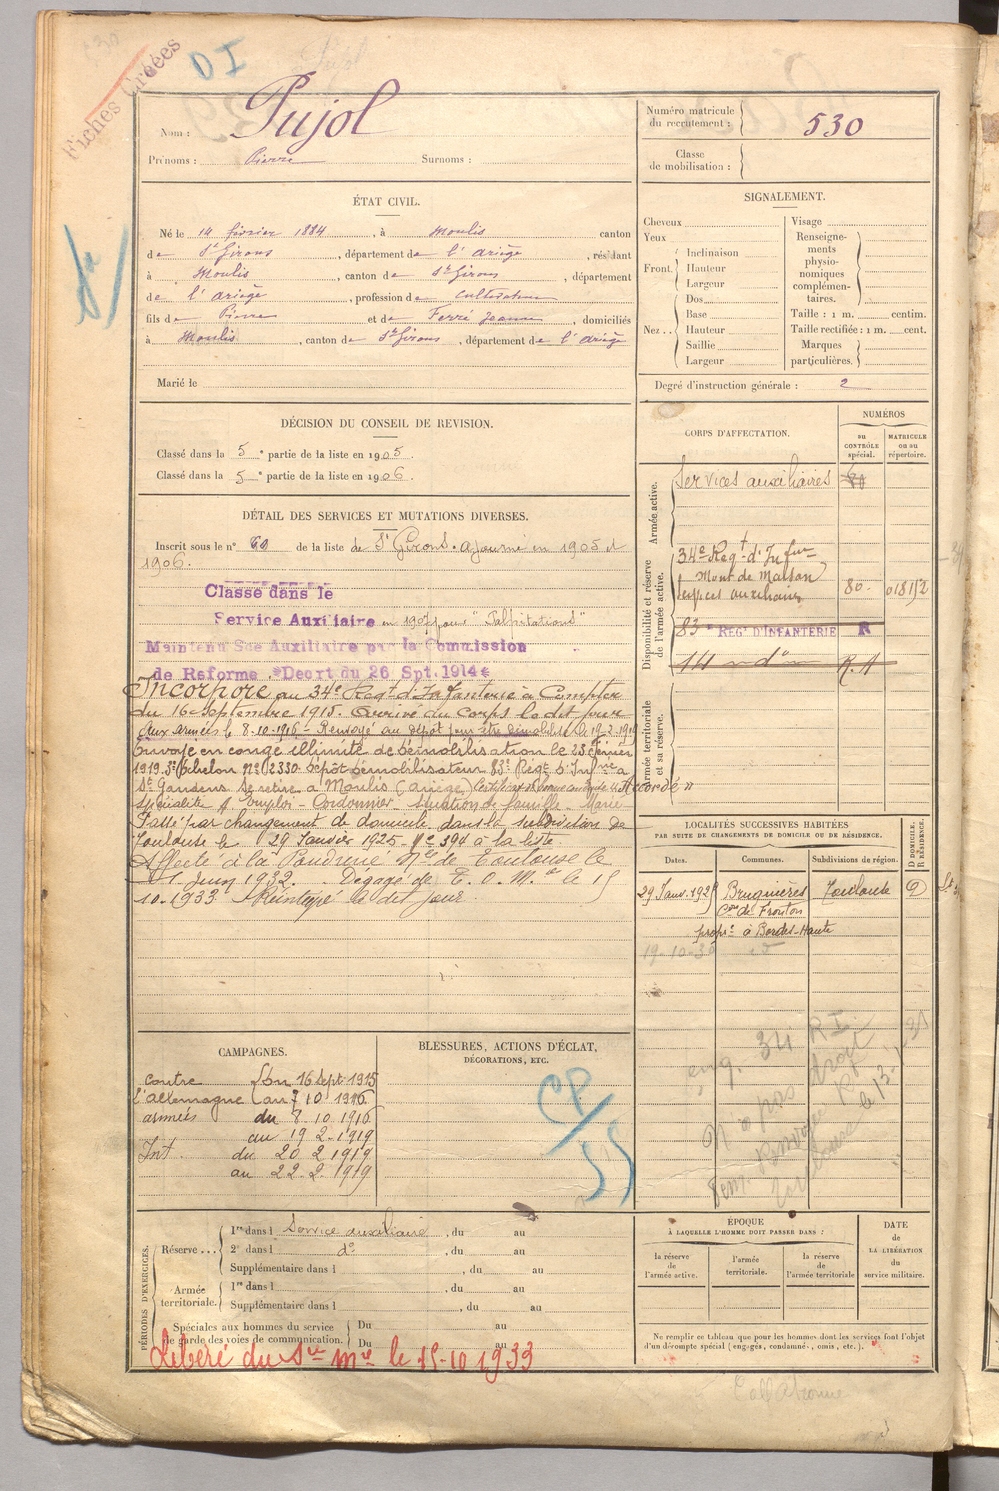 Fiches Créées
DI
Nom : Pujol
Prénoms : Pierre Surnoms :
Numéro matricule du recrutement : 530
Classe de mobilisation :
ÉTAT CIVIL.
Né le 14 février 1884, à Moulis canton
de St Girons, département de l'ariège, résidant
à Moulis, canton de St Girons, département
de l'ariège, profession de cultivateur
fils de Pierre et de Ferré Jeanne, domiciliés
à Moulis, canton de St Girons, département de l'ariège
Marié le
SIGNALEMENT.
Cheveux
Yeux
Front. Inclinaison
Hauteur
Largeur
Nez... Dos
Base
Hauteur
Saillie
Largeur
Visage
Renseignements physionomiques complémentaires.
Taille : 1 m. centim.
Taille rectifiée : 1 m. cent.
Marques particulières.
Degré d'instruction générale : 2
DÉCISION DU CONSEIL DE REVISION.
Classé dans la 5e partie de la liste en 1905.
Classé dans la 5e partie de la liste en 1906.
DÉTAIL DES SERVICES ET MUTATIONS DIVERSES.
Inscrit sous le n° 60 de la liste de St Girons. ajourné en 1905 et
1906.
Classé dans le
Service Auxiliaire en 1907 pour "Palpitations"
Maintenu Sce Auxiliaire par la Commission
de Reforme *Decrt du 26 Spt. 1914*
Incorporé au 34e Regt d'Infanterie à Compter
du 16 Septembre 1915. Arrivé au corps le dit jour
Aux armées le 8-10-1916 - Renvoyé au dépôt pour être démobilisé le 19-2-1919
Envoyé en congé illimité de démobilisation le 23 février
1919 3e Echelon No 2330 dépôt démobilisateur 83e Regt d'Infrie à
St Gaudens Se retire à Moulis (ariège) Certificat de bonne conduite "Accordé"
Spécialité d'emploi - Cordonnier - Situation de famille - Marié -
Passé par changement de domicile dans la subdivision de
Toulouse le 29 Janvier 1925 - No 394 à la liste
Affecté à la Poudrerie Nle de Toulouse le
1 Juin 1932. Dégagé de T.O.M. le 15
10.1933 Réintégré le dit jour
CORPS D'AFFECTATION.
NUMÉROS
au CONTRÔLE spécial.
MATRICULE ou au répertoire.
Armée active.
Services auxiliaires
Disponibilité et réserve de l'armée active.
34e Regt d'Infrie
Mont de Marsan
services auxiliaires 80
83e REGt D'INFANTERIE R
14 R.A
Armée territoriale et sa réserve.
LOCALITÉS SUCCESSIVES HABITÉES
PAR SUITE DE CHANGEMENTS DE DOMICILE OU DE RÉSIDENCE.
Dates. Communes. Subdivisions de région. D DOMICILE. R RÉSIDENCE.
29 Janv. 1925 Bruguières Toulouse D
Con de Fronton
propre à Bordes-Haute
19-10-30
34 RI
N'a pas droit
CAMPAGNES.
contre du 16 Sept 1915
l'allemagne au 7 10 1916
armées du 8.10 1916
au 19 2.1919
Int. du 20 2 1919
au 22.2 1919
BLESSURES, ACTIONS D'ÉCLAT,
DÉCORATIONS, ETC.
CP/55
PÉRIODES D'EXERCICES.
Réserve... 1re dans l Service auxiliaire, du au
2e dans l do, du au
Supplémentaire dans l, du au
Armée territoriale. 1re dans l, du au
Supplémentaire dans l, du au
Spéciales aux hommes du service de garde des voies de communication. Du au
Du au
Libéré du Sce mre le 15-10 1933
ÉPOQUE
À LAQUELLE L'HOMME DOIT PASSER DANS :
la réserve de l'armée active.
l'armée territoriale.
la réserve de l'armée territoriale
DATE DE LA LIBÉRATION du service militaire.
Ne remplir ce tableau que pour les hommes dont les services font l'objet
d'un décompte spécial (engagés, condamnés, omis, etc.).